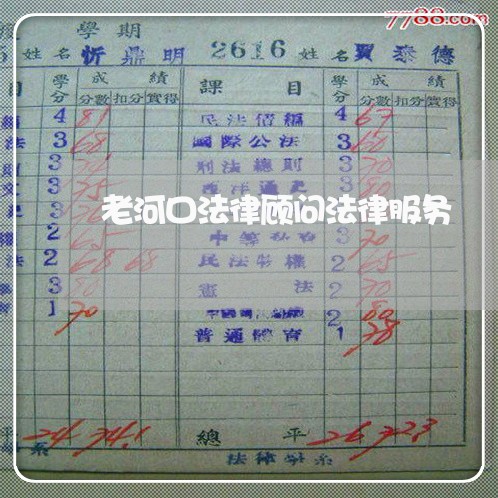 7788.com
學期
姓名 忻鼎明 2616 姓名 賈泰德
目 學分 成績 課目 學分 成績
分數 扣分 實得 分數 扣分 實得
4 81 民法債編 4 67
法 3 68 國際公法 3 60
3 刑法總則 3 70
3 75 西洋通史 3 80
老河口法律顾问法律服务
2 65 3 70
法 2 68 68 民法物權 2 65
3 80 憲法 2 70
1 70 2 80
普通體育 1 78
平 24 74.1 總平 26 72.3
系 法律學系